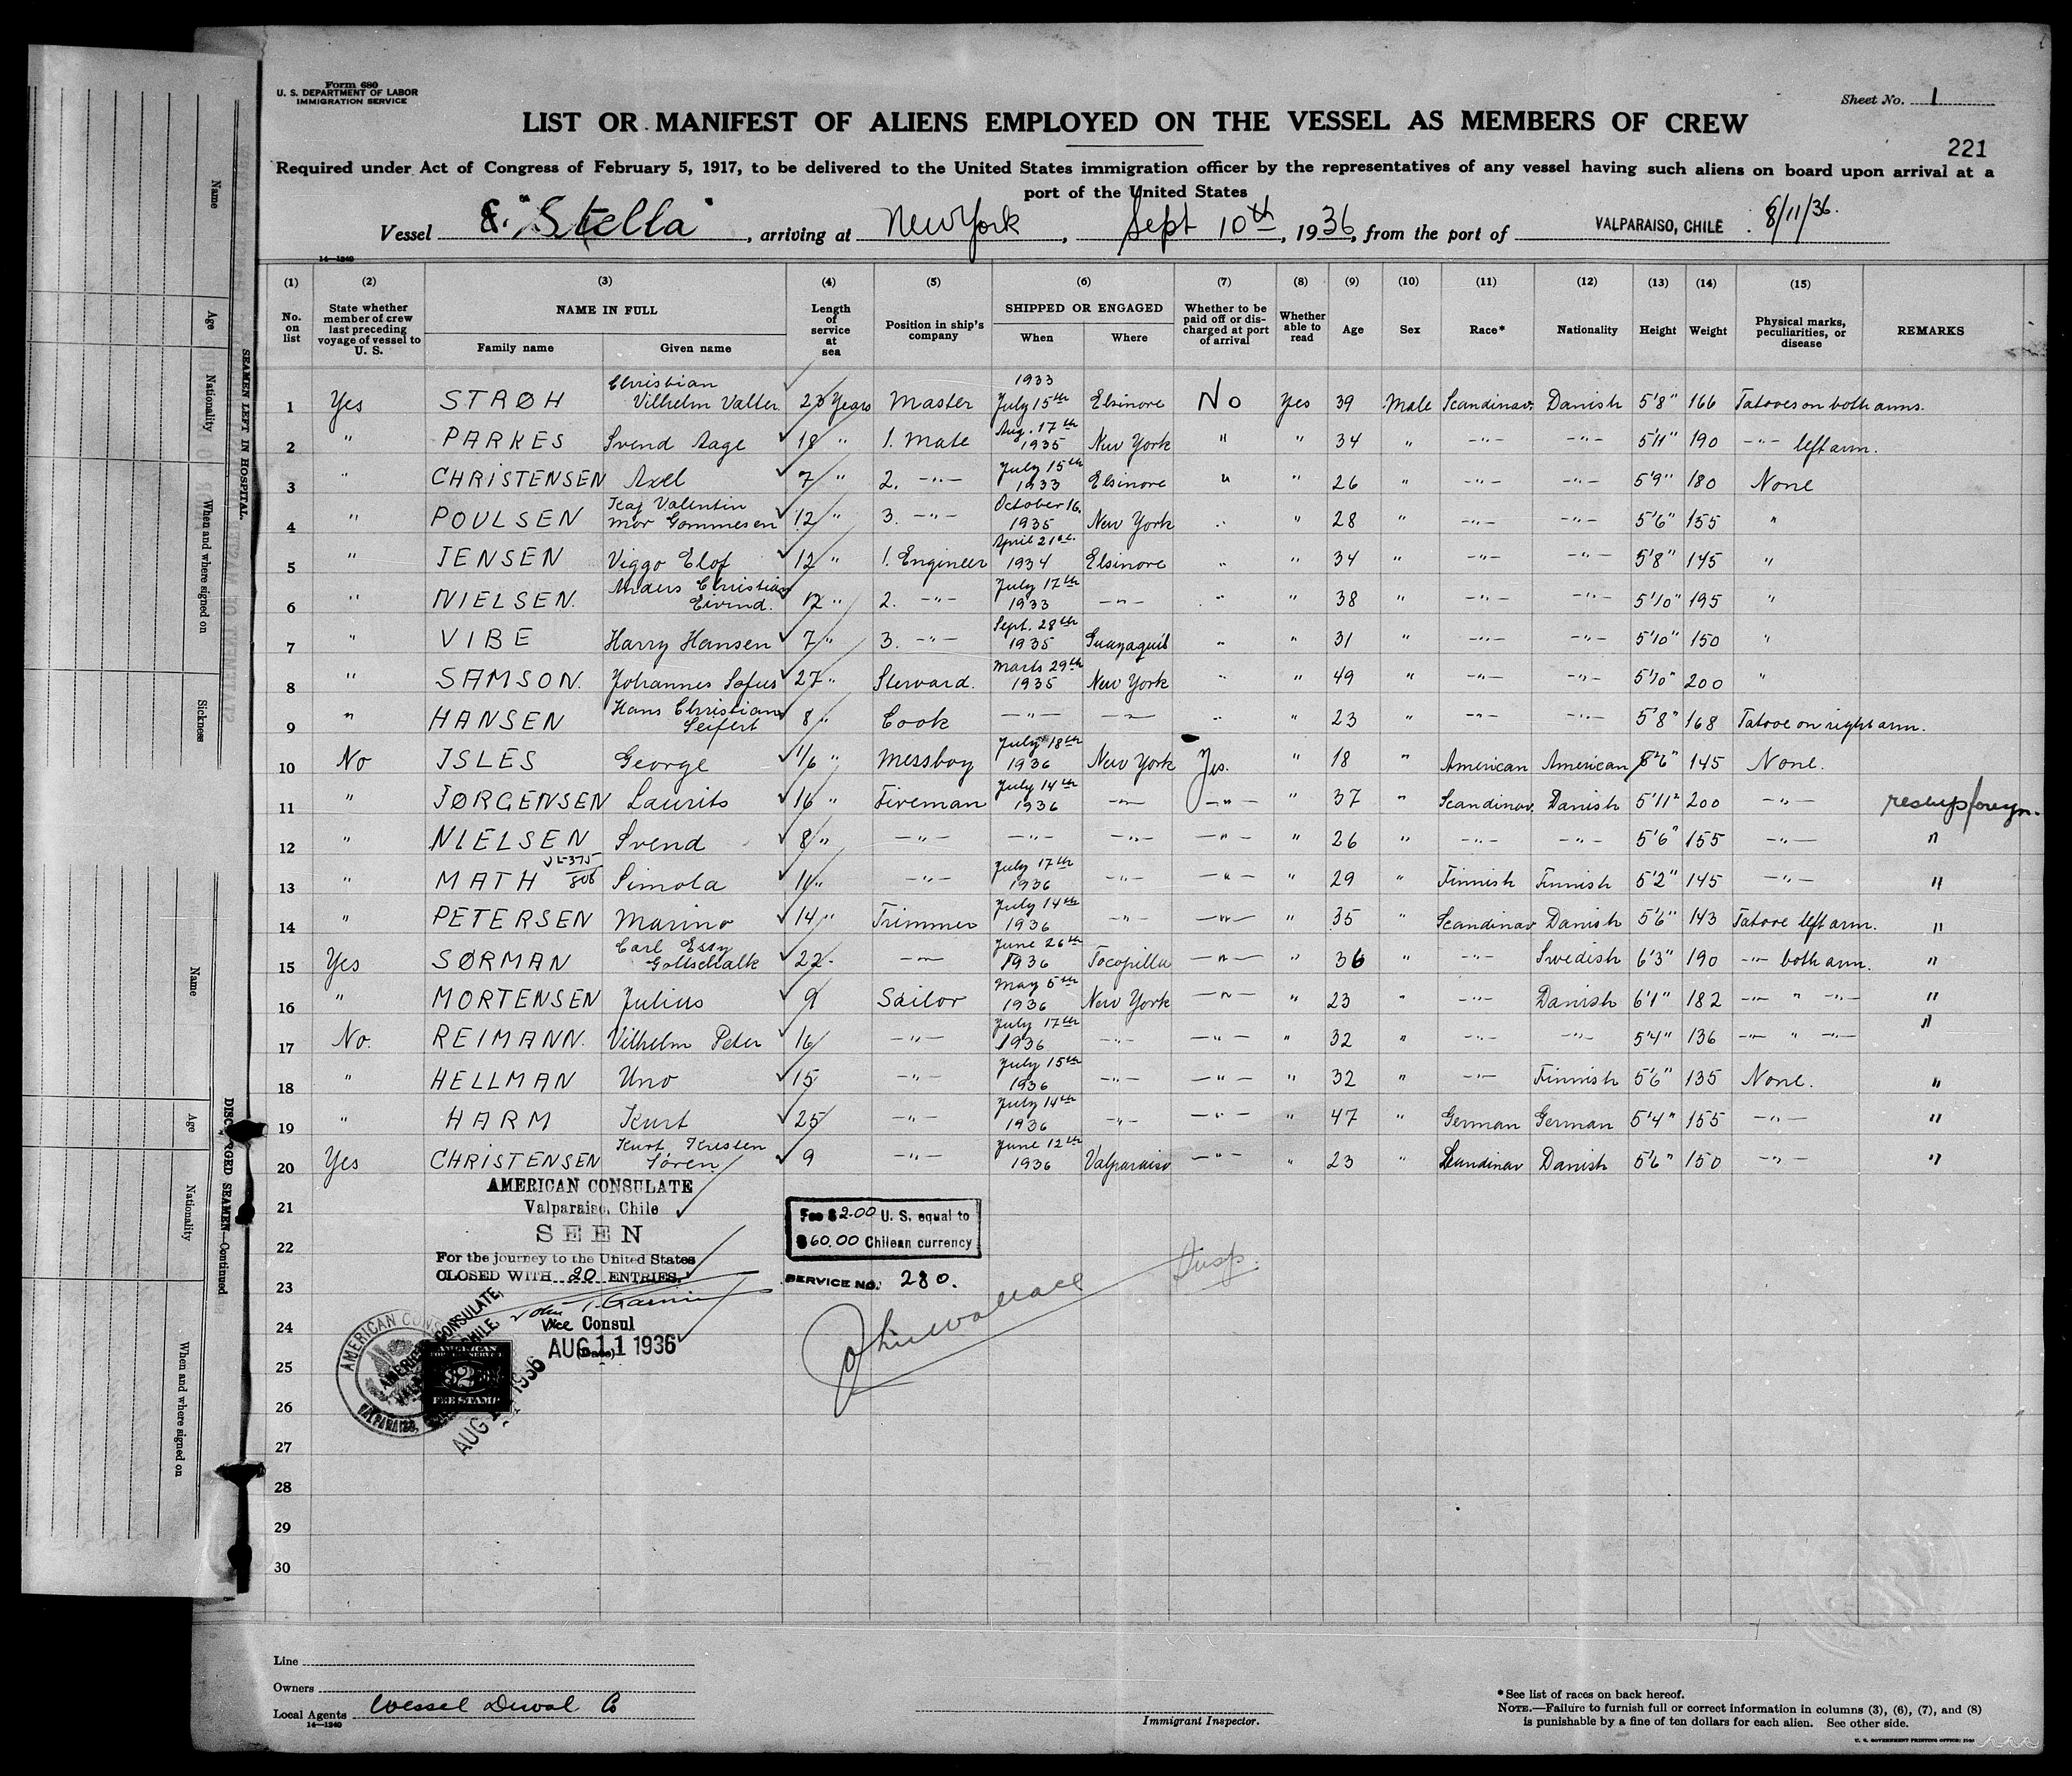 Form 680
U. S. DEPARTMENT OF LABOR
IMMIGRATION SERVICE
Sheet No. 1
LIST OR MANIFEST OF ALIENS EMPLOYED ON THE VESSEL AS MEMBERS OF CREW
221
Required under Act of Congress of February 5, 1917, to be delivered to the United States immigration officer by the representatives of any vessel having such aliens on board upon arrival at a
port of the United States
Vessel "Stella", arriving at New York, Sept 10th, 1936, from the port of VALPARAISO, CHILE 8/11/36.
14—1240
(1) (2) (3) (4) (5) (6) (7) (8) (9) (10) (11) (12) (13) (14) (15)
No. on list
State whether member of crew last preceding voyage of vessel to U. S.
NAME IN FULL
Family name
Given name
Length of service at sea
Position in ship's company
SHIPPED OR ENGAGED
When
Where
Whether to be paid off or discharged at port of arrival
Whether able to read
Age
Sex
Race*
Nationality
Height
Weight
Physical marks, peculiarities, or disease
REMARKS
1 Yes STRØH Christian Vilhelm Valter 23 Years Master 1933 July 15th Elsinore No Yes 39 Male Scandinav. Danish 5'8" 166 Tatoves on both arms.
2 " PARKES Svend Aage 18 " 1. Mate Aug. 17th 1935 New York " " 34 " —"— —"— 5'11" 190 —"— left arm.
3 " CHRISTENSEN Axel 7 " 2. —"— July 15th 1933 Elsinore " " 26 " —"— —"— 5'9" 180 None
4 " POULSEN Kaj Valentin mör Gommesen 12 " 3. —"— October 16. 1935 New York " " 28 " —"— —"— 5'6" 155 "
5 " JENSEN Viggo Elof 12 " 1. Engineer April 21st. 1934 Elsinore " " 34 " —"— —"— 5'8" 145 "
6 " NIELSEN. Anders Christian Eivind. 12 " 2. —"— July 17th 1933 —"— " " 38 " —"— —"— 5'10" 195 "
7 " VIBE Harry Hansen 7 " 3. —"— Sept. 28th 1935 Guayaquil " " 31 " —"— —"— 5'10" 150 "
8 " SAMSON. Johannes Sofus 27 " Steward. Marts 29th 1935 New York " " 49 " —"— —"— 5'10" 200 "
9 " HANSEN Hans Christian Seifert 8 " Cook —"— —"— " " 23 " —"— —"— 5'8" 168 Tatove on right arm.
10 No ISLES George 1/6 " Messboy July 18th 1936 New York Yes. " 18 " American American 5'6" 145 None.
11 " JØRGENSEN Laurits 16 " Fireman July 14th 1936 —"— —"— " 37 " Scandinav. Danish 5'11" 200 —"— reship foreign.
12 " NIELSEN Svend 8 " —"— —"— —"— —"— " 26 " —"— —"— 5'6" 155 —"— "
13 " MATH VL-375/806 Simola 11 " —"— July 17th 1936 —"— —"— " 29 " Finnish Finnish 5'2" 145 —"— "
14 " PETERSEN Marino 14 " Trimmer July 14th 1936 —"— —"— " 35 " Scandinav Danish 5'6" 143 Tatove left arm. "
15 Yes SØRMAN Carl Essy Gottschalk 22 —"— June 26th 1936 Tocopilla —"— " 36 " —"— Swedish 6'3" 190 —"— both arm. "
16 " MORTENSEN Julius 9 Sailor May 5th 1936 New York —"— " 23 " —"— Danish 6'1" 182 —"— " —"— "
17 No. REIMANN. Vilhelm Peter 16 —"— July 17th 1936 —"— —"— " 32 " —"— —"— 5'4" 136 —"— " —"— "
18 " HELLMAN Uno 15 —"— July 15th 1936 —"— —"— " 32 " —"— Finnish 5'6" 135 None. "
19 " HARM Kurt 25 —"— July 14th 1936 —"— —"— " 47 " German German 5'4" 155 —"— "
20 Yes CHRISTENSEN Kurt Kresten Søren 9 —"— June 12th 1936 Valparaiso —"— " 23 " Scandinav Danish 5'6" 150 —"— "
21
22
23
24
25
26
27
28
29
30
AMERICAN CONSULATE
Valparaiso, Chile
SEEN
For the journey to the United States
CLOSED WITH 20 ENTRIES.
Vice Consul
AUG 11 1936
(Date)
Fee $2.00 U. S. equal to
$60.00 Chilean currency
SERVICE NO. 280.
Insp.
AMERICAN CONSULATE,
VALPARAISO,
2
FEE STAMP
Line
Owners
Local Agents Wessel Duval Co
14—1240
Immigrant Inspector.
*See list of races on back hereof.
NOTE.—Failure to furnish full or correct information in columns (3), (6), (7), and (8)
is punishable by a fine of ten dollars for each alien. See other side.
U. S. GOVERNMENT PRINTING OFFICE
SEAMEN LEFT IN HOSPITAL.
Name
Age
Nationality
When and where signed on
Sickness
DISCHARGED SEAMEN—Continued
Name
Age
Nationality
When and where signed on